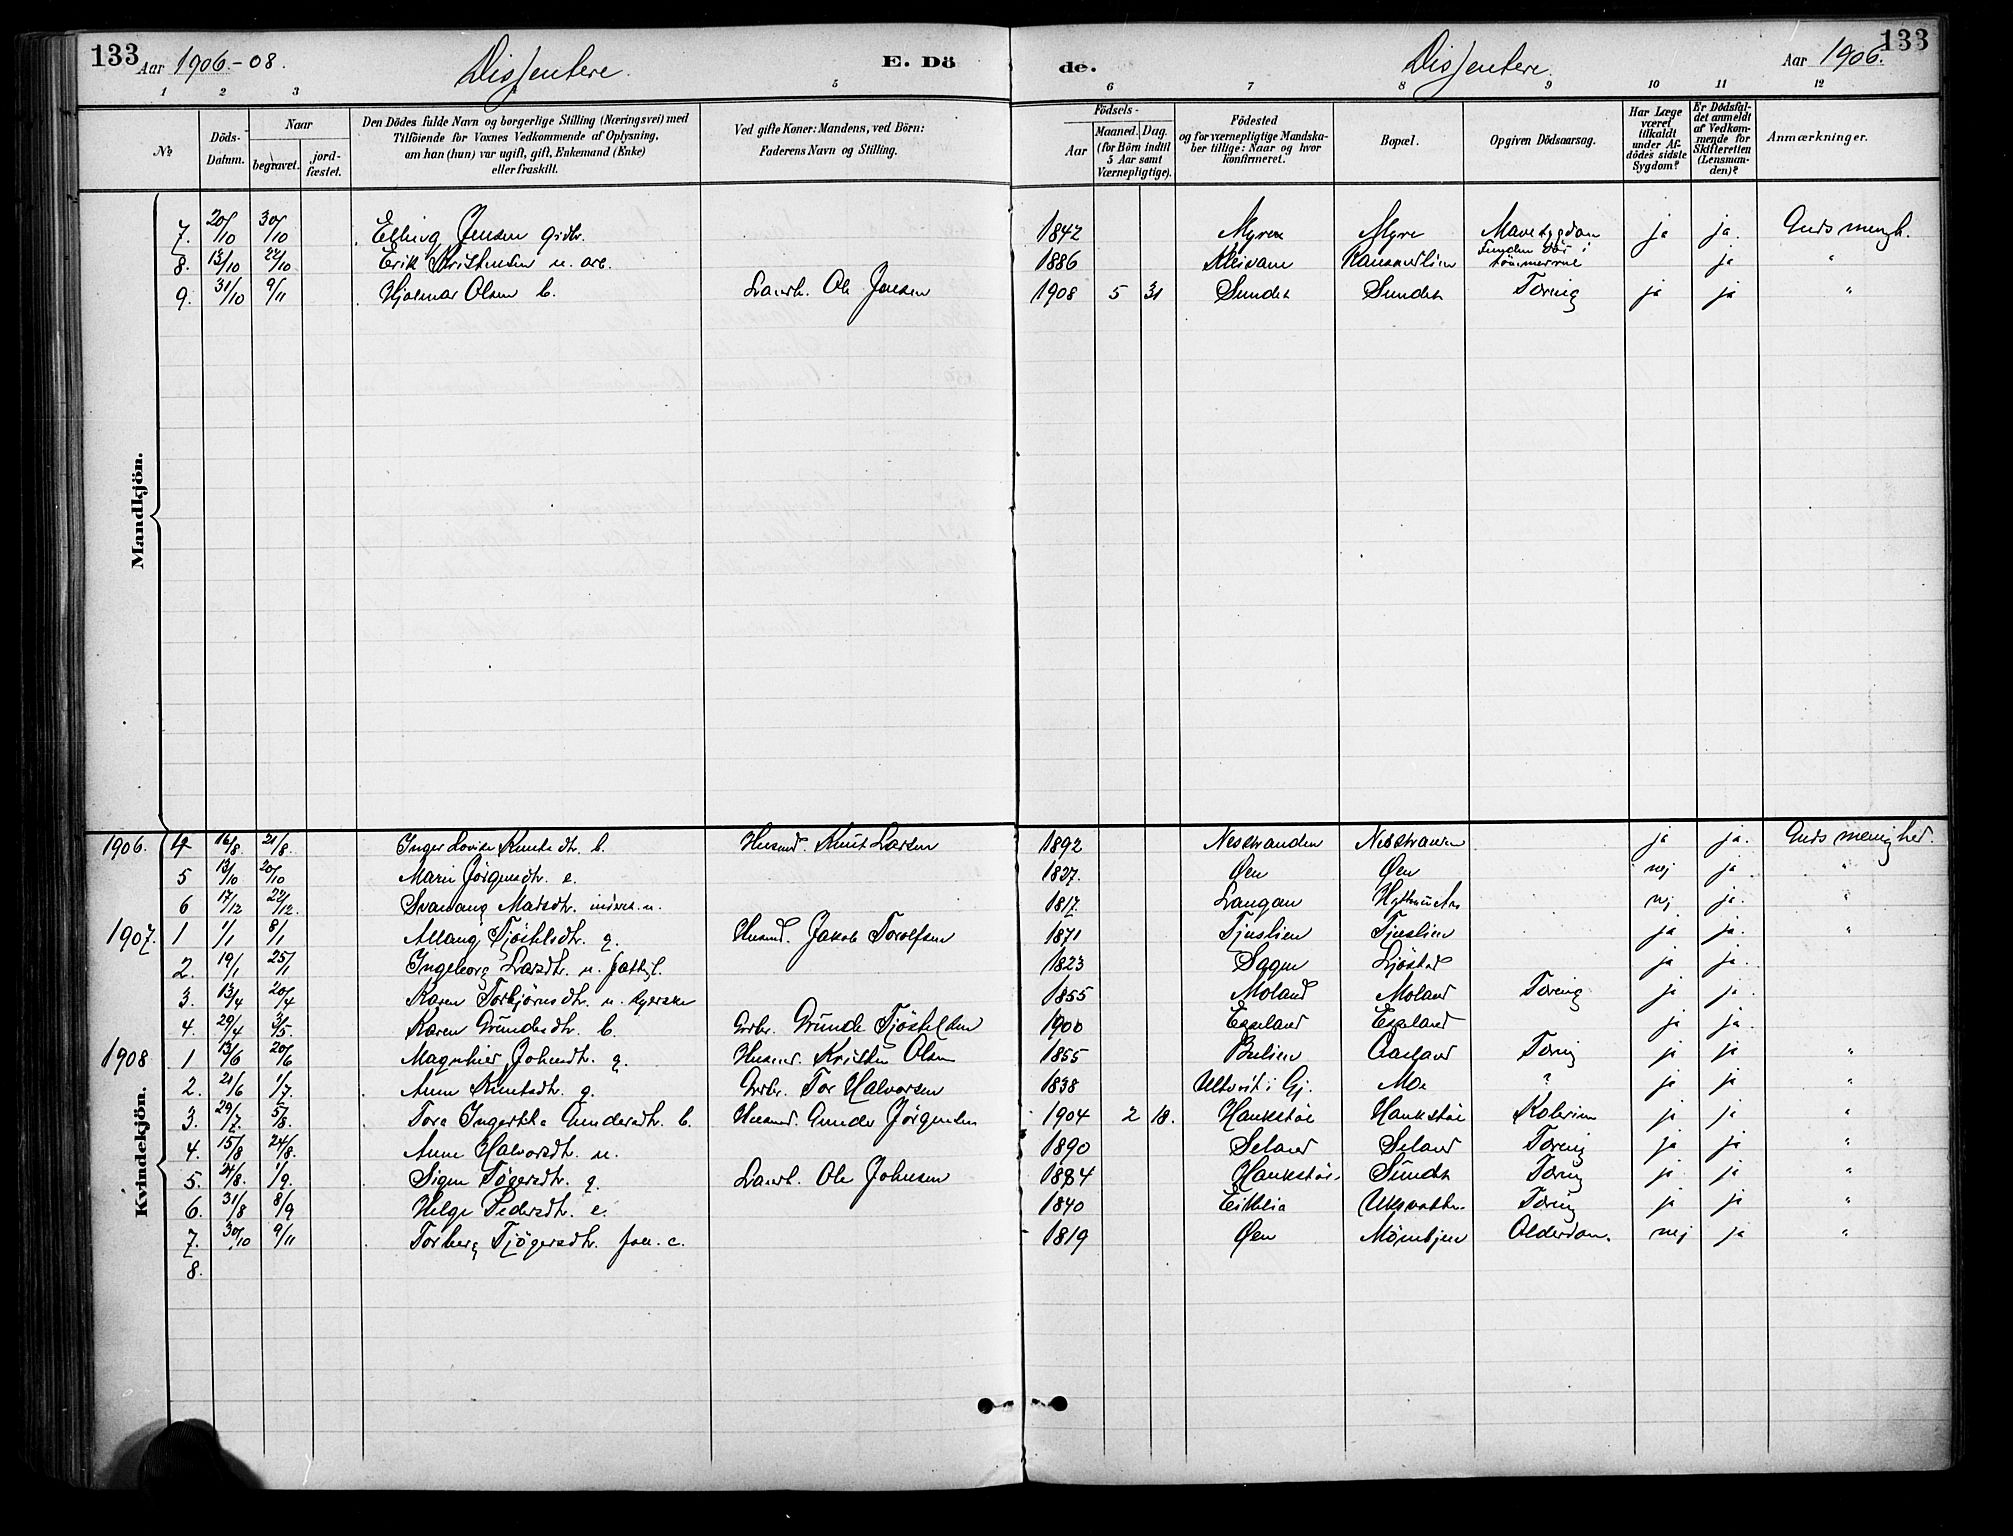 133 Aar 1906.-08. Dissentere. E. Dö de. Dissentere. Aar 1906. 133
1 2 3 5 6 7 8 9 10 11 12
No
Döds-Datum.
Naar begravet. jordfæstet.
Den Dödes fulde Navn og borgerlige Stilling (Næringsvei) med Tilföiende for Voxnes Vedkommende af Oplysning, om han (hun) var ugift, gift, Enkemand (Enke) eller fraskilt.
Ved gifte Koner: Mandens, ved Börn: Faderens Navn og Stilling.
Födsels-
Aar
Maaned. Dag. (for Börn indtil 5 Aar samt Værnepligtige).
Födested og for værnepligtige Mandskaber tillige: Naar og hvor konfirmeret.
Bopæl.
Opgiven Dödsaarsag.
Har Læge været tilkaldt under Afdödes sidste Sygdom?
Er Dödsfaldet anmeldt af Vedkommende for Skifteretten (Lensmanden)?
Anmærkninger.
Mandkjön.
7. 20/10 30/10 Elling Jensen Grdbr. 1842 Myren Myre Mavesygdom ja ja. Guds mengh.
8. 13/10 22/10 Erik Kristensen u. arb. 1886 Kleivane Funden död i ja "
9. 31/10 9/11 Hjalmar Olsen b. Laarb. Ole Jensen 1908 5 31 Sundet Sundet Tæring ja ja "
Kvindekjön.
1906. 4 16/8. 21/8. Inger Lovise Knutsdtr. b. Husmd. Knut Larsen 1892 Nesstranden Nesstranden ja ja. Guds menighed.
5 13/10 20/10 Maren Jörgensdtr. e. 1827. Øen Øen nej ja "
6 17/12 22/12. Svanaug Madsdtr. inders. u. 1817. Langan nej ja.
1907. 1 1/1 8/1 Allaug Tjöstelsdtr. g. Husmd. Jakob Torolfsen 1871 Tjuslien Tjuslien ja ja. "
2. 19/1 25/1 Ingeborg Larsdtr. u. fattigl. 1823 Sagen Ljöstad ja ja.
3. 13/4 20/4 Karen Torbjörnsdtr. u. syerske 1855 Moland Moland Tæring ja ja.
4. 29/4 3/5. Karen Gundesdtr. b. Grbr. Grunde Tjöstelsen 1900 Espeland Espeland ja ja.
1908 1 13/6 20/6 Magnhild Johnsdtr. g. Husmd. Kristen Olsen 1855 Aasland Tæring ja ja "
2. 21/6 1/7. Anne Knutsdtr. g. Grbr. Tor Halvorsen 1838 Ulltveit i Gj. Moe ? ja ja "
3. 29/7. 5/8. Tora Ingertha Gundersdtr. b. Husmd. Gunder Jörgensen 1904 2 18. Haukstöe Haukstöe Kolerine ja ja "
4. 15/8 24/8. Anne Halvorsdtr. u. 1890 Seland Seland Tæring ja ja "
5. 24/8. 1/9. Signe Tögersdtr. g. Laarb. Ole Johnsen 1884 Haukstöe. Sundet Tæring ja ja "
6. 31/8 8/9 Helge Pedersdtr. e. 1840 Eiklia Tæring ja ja "
7. 30/10 9/11 Torberg Tjögersdtr. foe. e. 1819 Øen Alderdom. nej ja "
8.